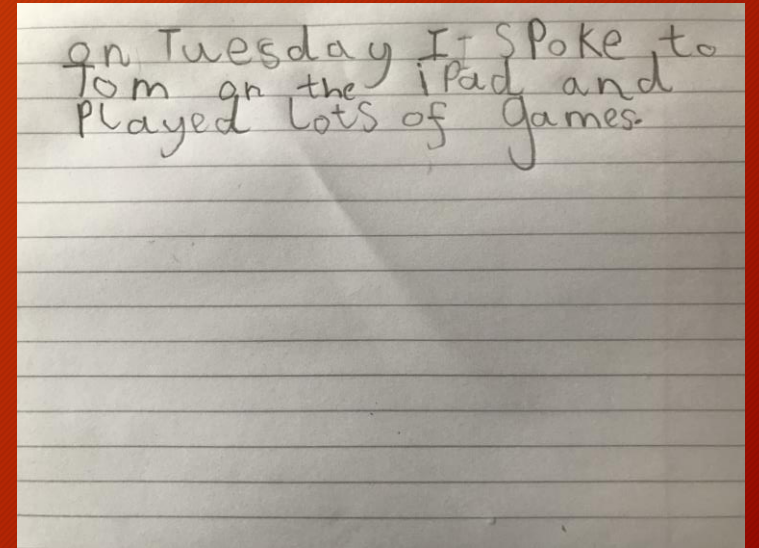 on Tuesday I spoke to
Tom on the iPad and
Played lots of games.